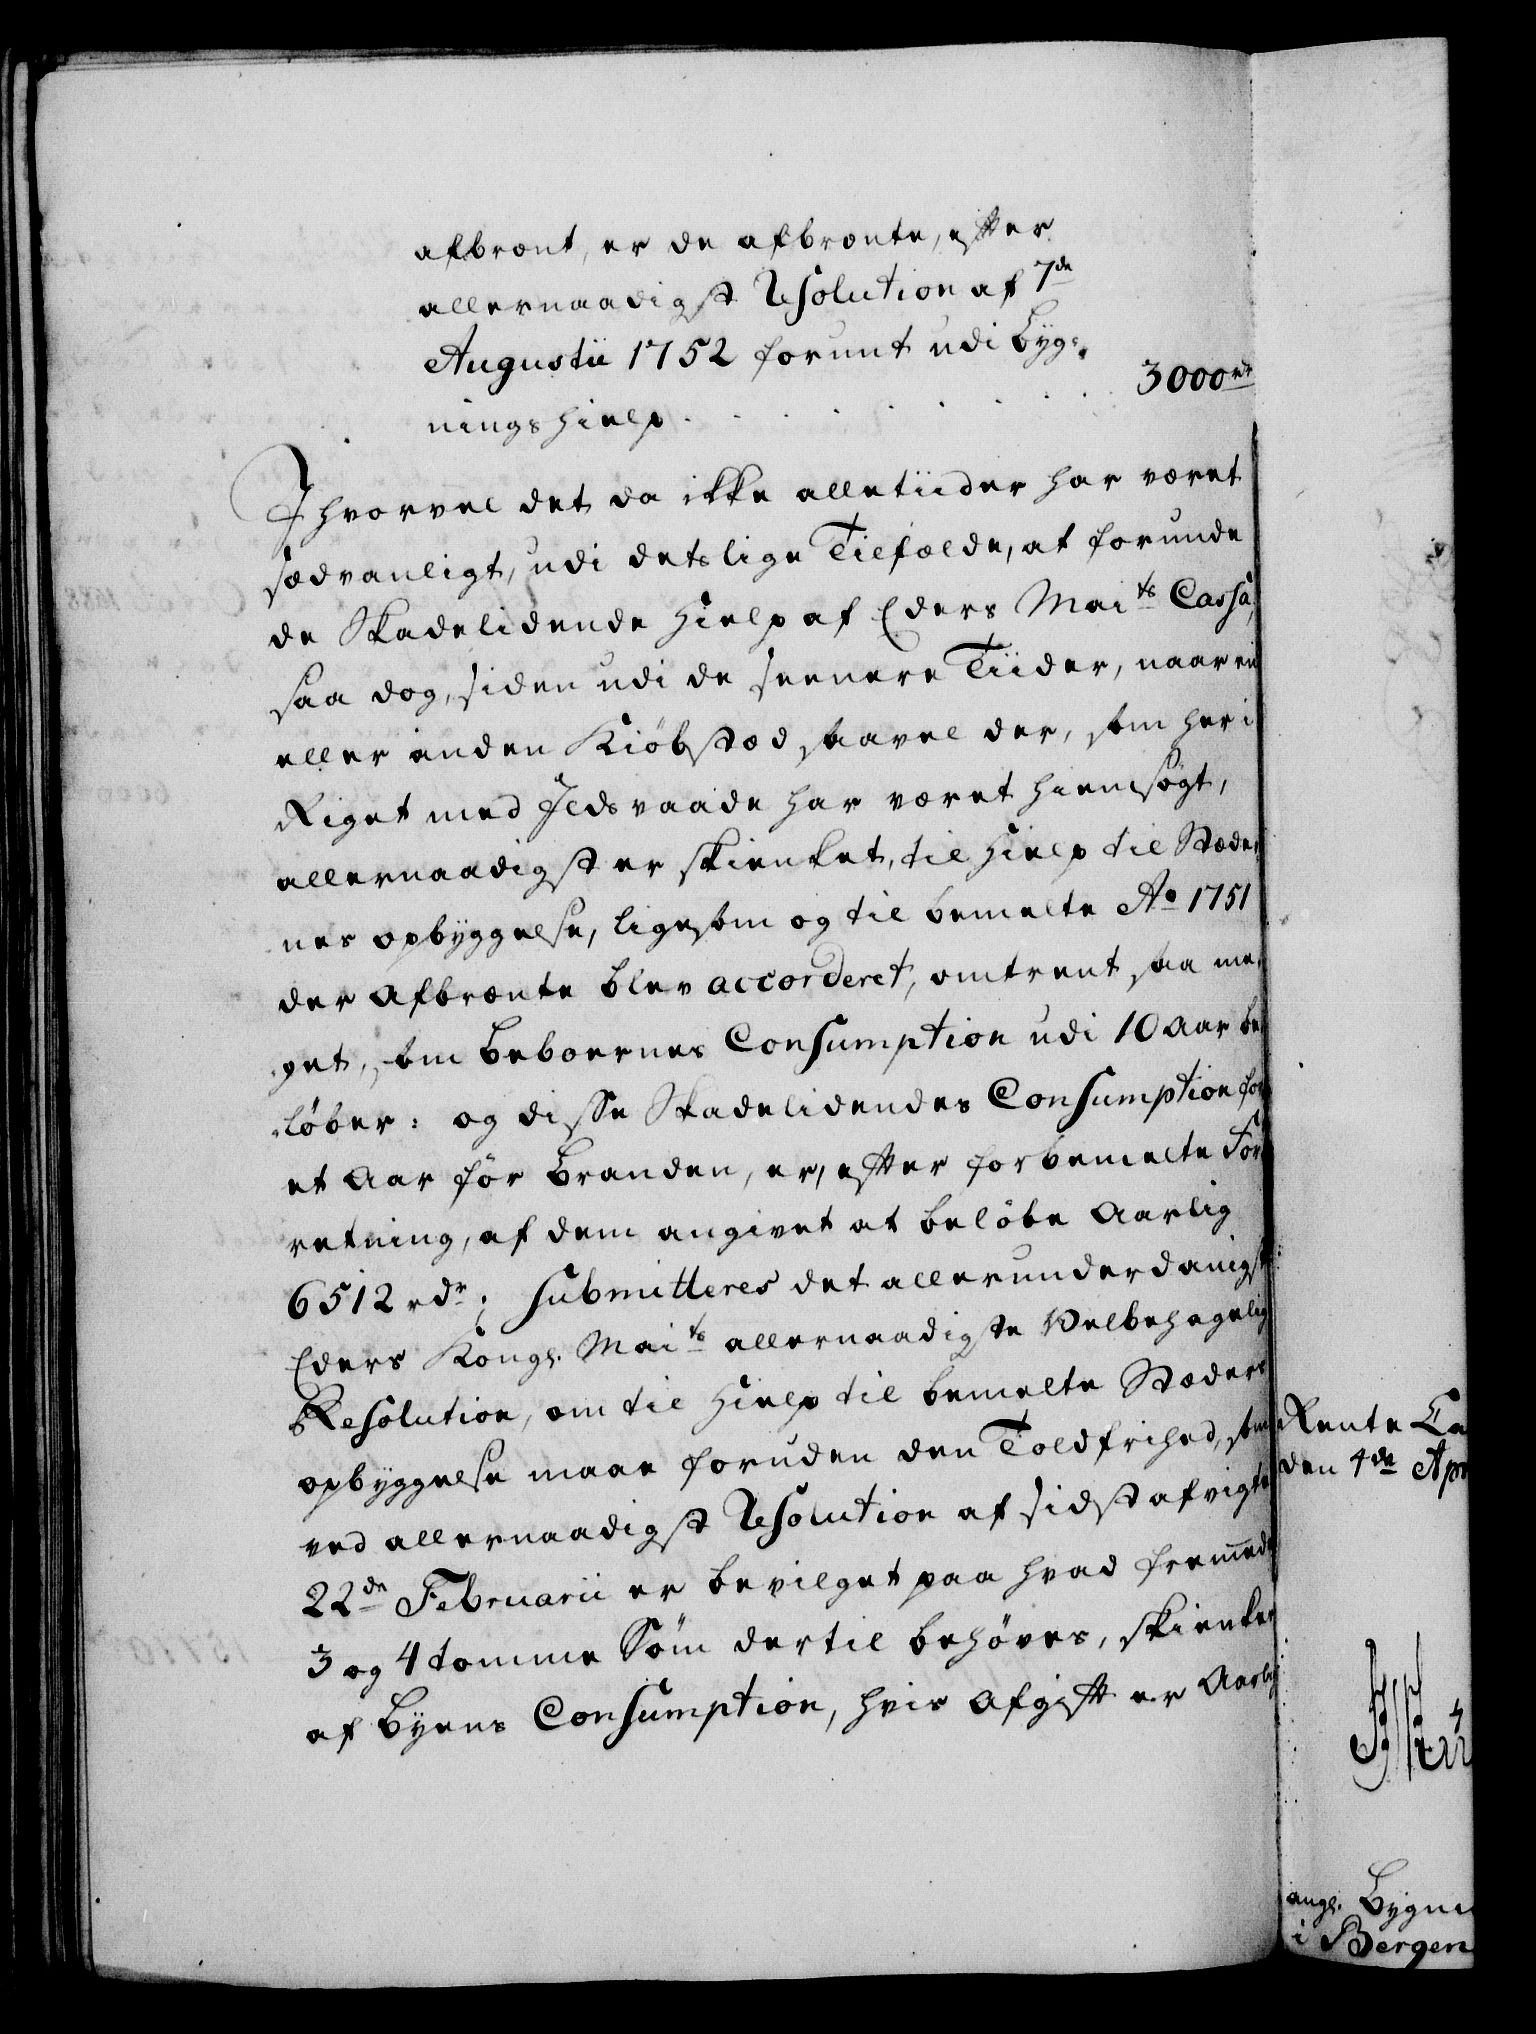 afbrænt, er de afbrænte, efter
allernaadigst Resolution af 7de
Augustii 1752 forunt udi Byg-
ningshielp . . . . . . . 3000 rdr
Ihvorvel det da ikke alletiider har været
sædvanligt, udi detslige Tilfælde, at forunde
de Skadelidende Hielp af Eders Maits Cassa,
saa dog, siden udi de seenere Tiider, naar en
eller anden Kiøbstæd saavel der, som her i
Riget med Ildsvaade har været hiemsøgt,
allernaadigst er skienket, til Hielp til Stæder
nes opbyggelse, ligesom og til bemelte Ao 1751
der Afbrænte blev accorderet, omtrent saa me-
get, som Beboernes Consumption udi 10 Aar be-
løber: og disse Skadelidendes Consumption for
et Aar før Branden, er, efter forbemelte For
retning, af dem angivet at beløbe Aarlig
6512 rdr; Submitteres det allerunderdanigst
Eders Kongl. Maits allernaadigste Velbehagelig
Resolution, om til Hielp til bemelte Stæders
opbyggelse maae foruden den Toldfrihed, som
ved allernaadigst Resolution af sidst afvigte
22de Februarii er bevilget paa hvad fremmede
3 og 4 tomme Søm dertil behøves, skienkes
af Byens Consumption, hvis Afgift er Aarlig
Rente Ca
den 4de Apr
angl. Bygni
i Bergen